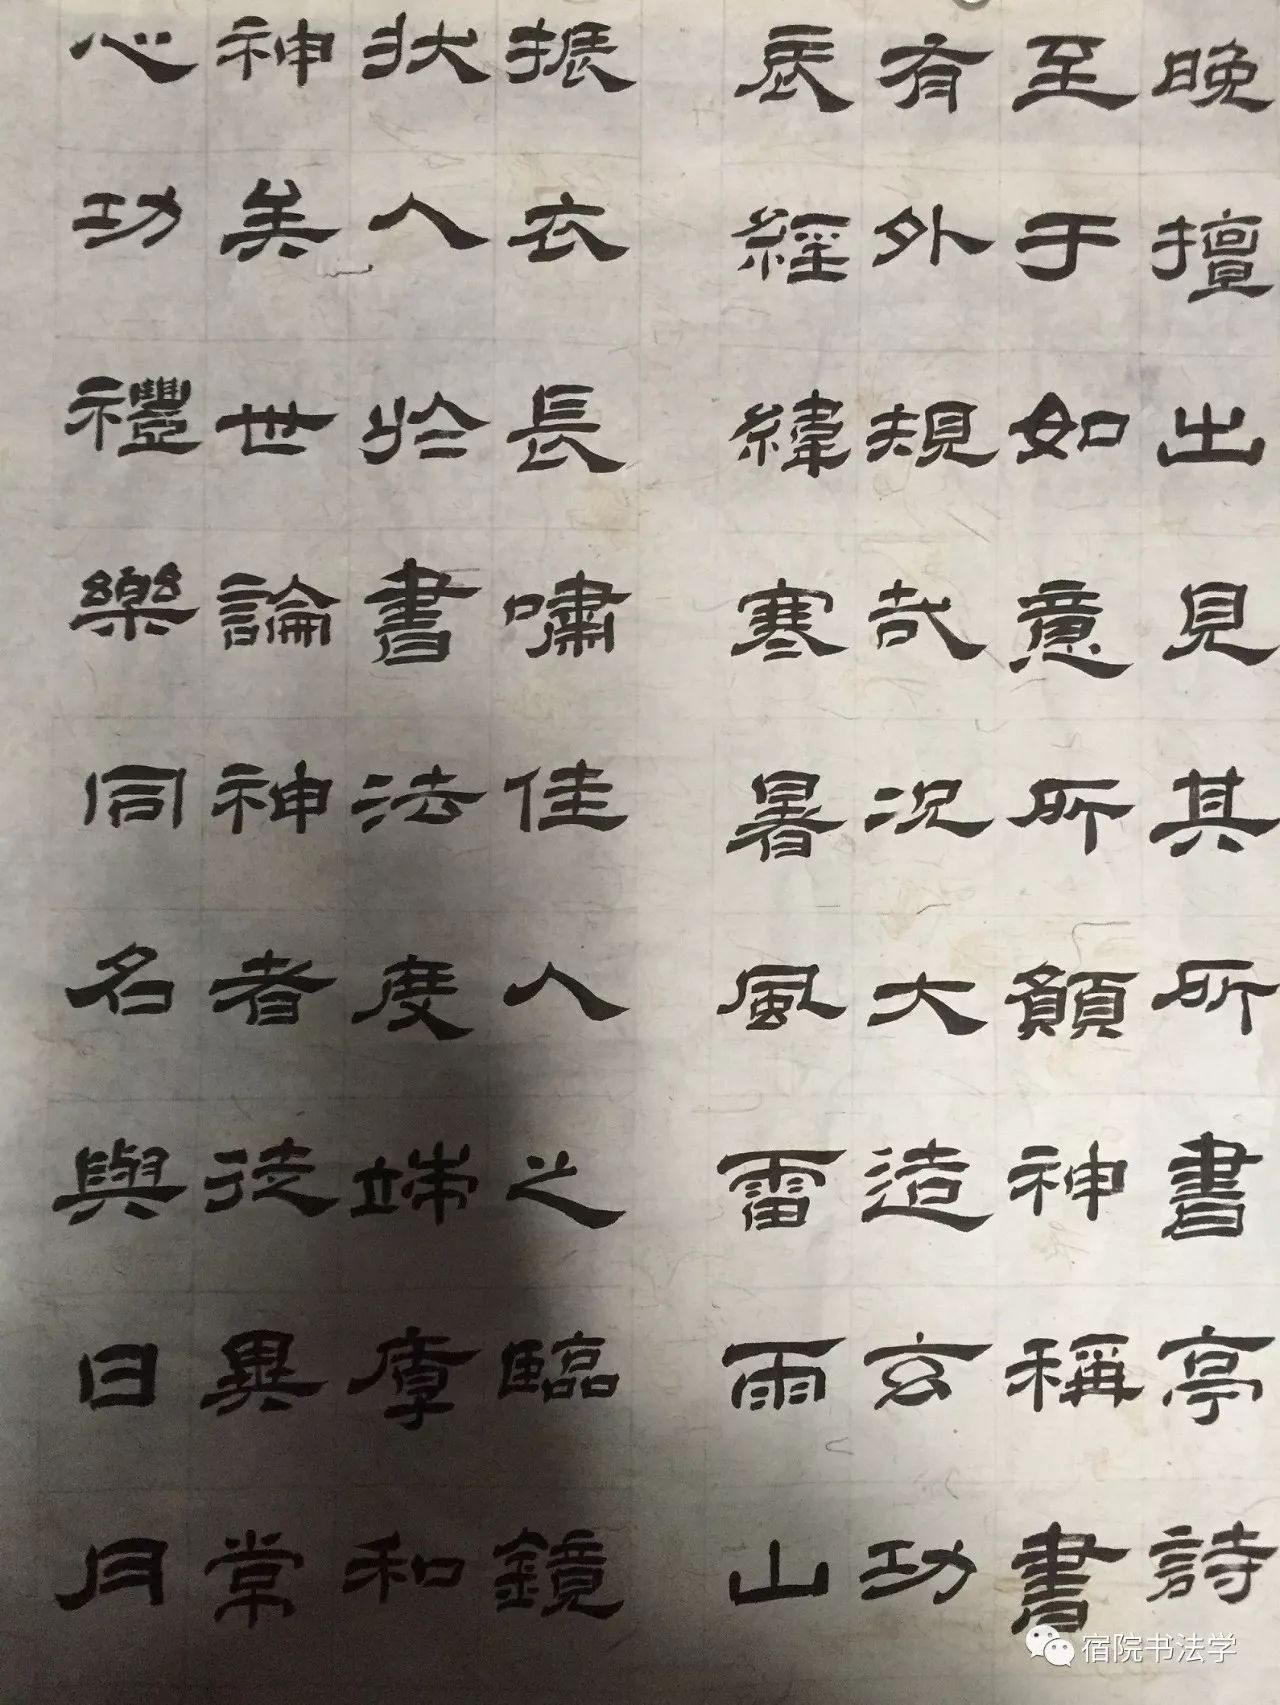 晚擅出見其所書亭詩
至于如意所顏神稱書
有外規哉況大造玄功
辰經緯寒暑風雷雨山
振衣長嘯佳人之臨鏡
狀人於書法度端庠和
神美世論神者徒異常
心功禮樂同名與日月
宿院书法学